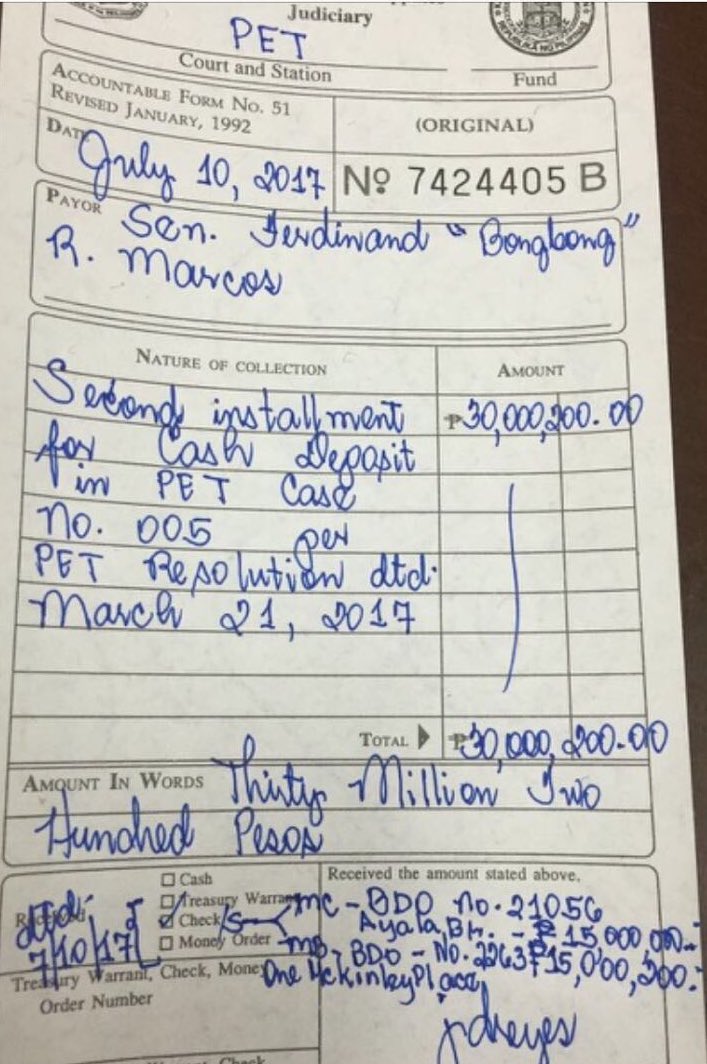 Judiciary
PET
Court and Station
Fund
REPUBLIKA NG PILIPINAS
ACCOUNTABLE FORM NO. 51
REVISED JANUARY, 1992
(ORIGINAL)
DATE July 10, 2017
Nº 7424405 B
PAYOR Sen. Ferdinand "Bongbong"
R. Marcos
NATURE OF COLLECTION AMOUNT
Second installment ₱30,000,200.00
for Cash Deposit
in PET Case
No. 005 per
PET Resolution dtd.
March 21, 2017
TOTAL ▶ ₱30,000,200.00
AMOUNT IN WORDS Thirty Million Two
Hundred Pesos
Received
dtd.
7/10/17
Cash
Treasury Warrant
Check/s
Money Order
Received the amount stated above.
MC - BDO No. 21056
Ayala, Br. - ₱15,000,000.-
BDO - No. 2263 ₱15,000,200.-
One McKinley Place
Treasury Warrant, Check, Money
Order Number